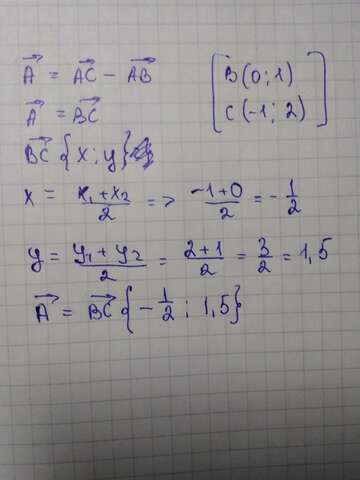 A⃗ = AC⃗ − AB⃗
B(0; 1)
A⃗ = BC⃗
C(-1; 2)
BC⃗ {x; y}
x = x₁+x₂/2 => -1+0/2 = -1/2
y = y₁+y₂/2 = 2+1/2 = 3/2 = 1,5
A⃗ = BC⃗ {-1/2; 1,5}